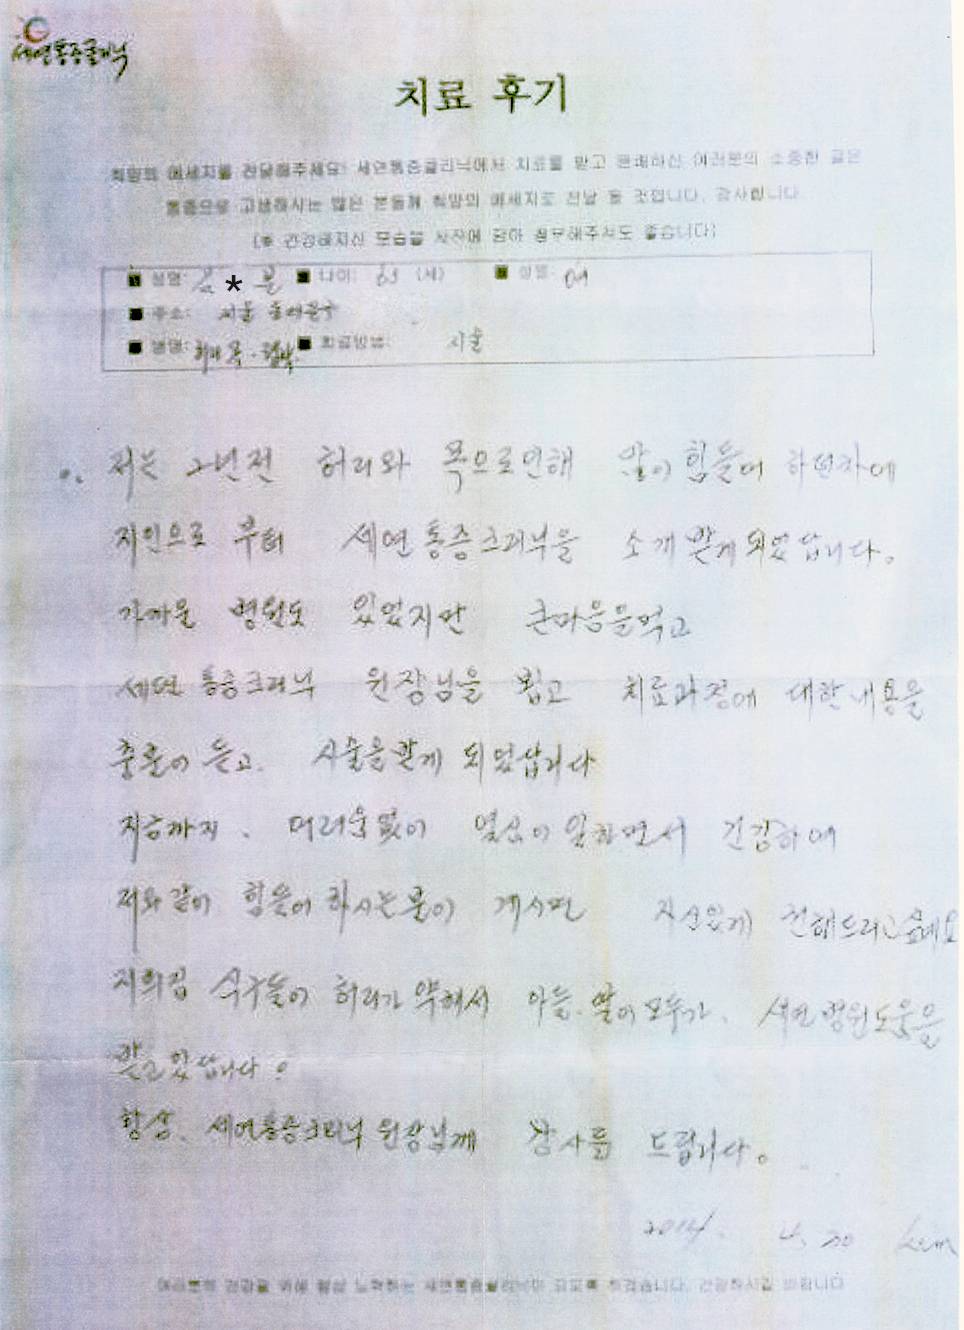 세연통증클리닉
치료 후기
희망의 메세지를 전달해주세요! 세연통증클리닉에서 치료를 받고 완쾌하신 여러분의 소중한 글은
통증으로 고생하시는 많은 분들께 희망의 메세지로 전달 될 것입니다. 감사합니다.
(※ 건강해지신 모습을 사진에 담아 첨부해주셔도 좋습니다)
■ 성명: 김 * 분 ■ 나이: 63 (세) ■ 성별: 여
■ 주소: 서울 동대문구
■ 병명: 허리 목 · 협착 ■ 치료방법: 시술
저는 2년전 허리와 목으로인해 많이 힘들어 하던차에
지인으로 부터 세연통증크리닉을 소개 받게되었습니다.
가까운 병원도 있었지만 큰마음을먹고
세연통증크리닉 원장님을 뵙고 치료과정에 대한내용을
충분이 듣고. 시술을받게 되었습니다
지금까지. 어려움없이 열심이일하면서 건강하며
저와같이 힘들어하시는분이 계시면 자신있게 전해드리고싶네요
저의집 식구들이 허리가 약해서 아들.딸이모두가. 세연병원도움을
받고있습니다.
항상. 세연통증크리닉원장님께 감사를 드립니다.
2014. 4. 30 kim
여러분의 건강을 위해 항상 노력하는 세연통증클리닉이 되도록 하겠습니다. 건강하시길 바랍니다